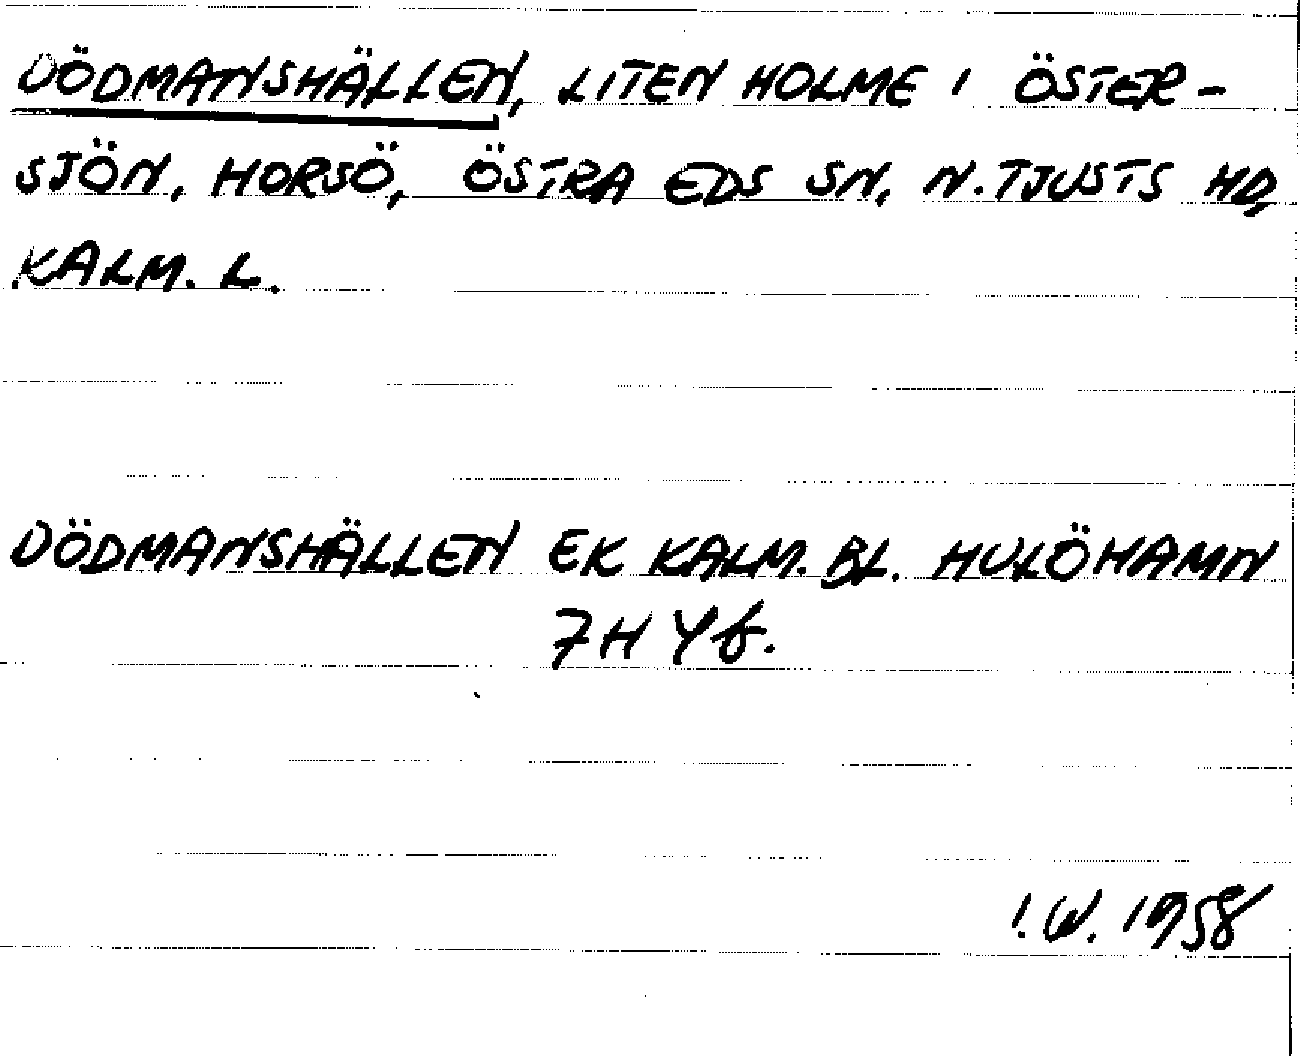 DÖDMANSHÄLLEN, LITEN HOLME I ÖSTER-
SJÖN, HORSÖ, ÖSTRA EDS SN, N. TJUSTS HD,
KALM. L.
DÖDMANSHÄLLEN EK KALM. BL. HULÖHAMN
7H Yf.
I.W. 1958